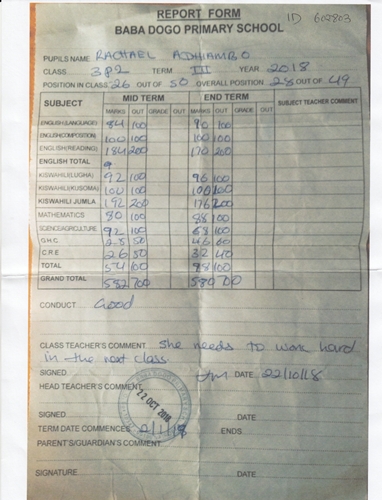 REPORT FORM ID 602803
BABA DOGO PRIMARY SCHOOL
PUPIL'S NAME RACHAEL ADHIAMBO
CLASS 3P2 TERM III YEAR 2018
POSITION IN CLASS 26 OUT OF 50 OVERALL POSITION 28 OUT OF 49
SUBJECT MID TERM END TERM SUBJECT TEACHER COMMENT
MARKS OUT GRADE OUT MARKS OUT GRADE OUT
ENGLISH(LANGUAGE) 84 100 70 100
ENGLISH(COMPOSITION) 100 100 100 100
ENGLISH(READING) 184 200 170 200
ENGLISH TOTAL
KISWAHILI(LUGHA) 92 100 96 100
KISWAHILI(KUSOMA) 100 100 100 100
KISWAHILI JUMLA 192 200 176 200
MATHEMATICS 80 100 88 100
SCIENCE/AGRICULTURE 92 100 68 100
G.H.C 28 50 46 60
C.R.E 26 50 32 40
TOTAL 54 100 98 100
GRAND TOTAL 582 700 580 700
CONDUCT Good
CLASS TEACHER'S COMMENT She needs to work hard
in the next class.
SIGNED DATE 22/10/18
HEAD TEACHER'S COMMENT
22 OCT 2018
SIGNED DATE
TERM DATE COMMENCES 2/1/18 ENDS
PARENT'S/GUARDIAN'S COMMENT
SIGNATURE DATE